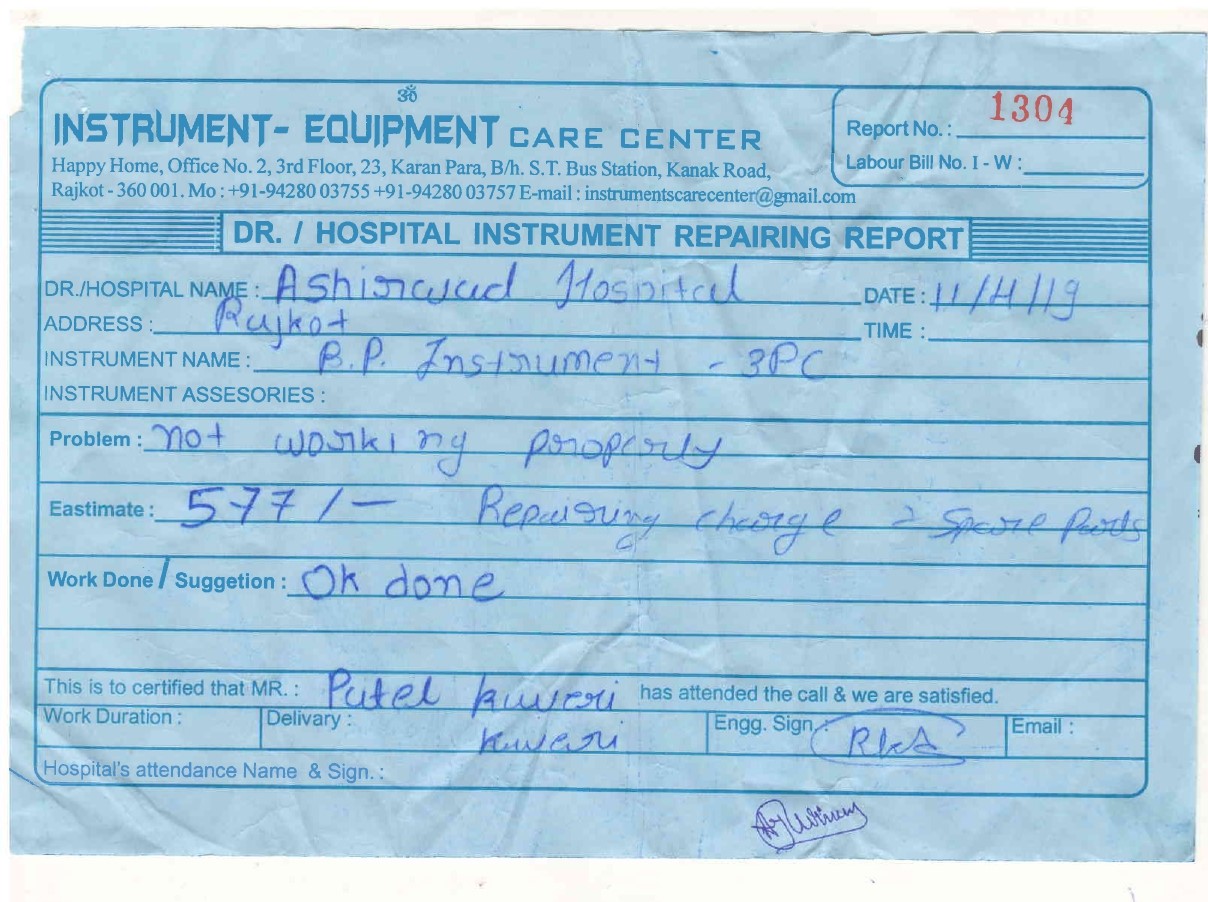 ॐ
INSTRUMENT- EQUIPMENT CARE CENTER
Happy Home, Office No. 2, 3rd Floor, 23, Karan Para, B/h. S.T. Bus Station, Kanak Road,
Rajkot - 360 001. Mo : +91-94280 03755 +91-94280 03757 E-mail : instrumentscarecenter@gmail.com
Report No. : 1304
Labour Bill No. I - W :
DR. / HOSPITAL INSTRUMENT REPAIRING REPORT
DR./HOSPITAL NAME : Ashirwad Hospital DATE : 11/4/19
ADDRESS : Rajkot TIME :
INSTRUMENT NAME : B.P. Instrument - 3PC
INSTRUMENT ASSESORIES :
Problem : not working properly
Eastimate : 577/- Repairing charge Spare Parts
Work Done / Suggetion : Ok done
This is to certified that MR. : Patel has attended the call & we are satisfied.
Work Duration : Delivary : Engg. Sign : Email :
Hospital's attendance Name & Sign. :